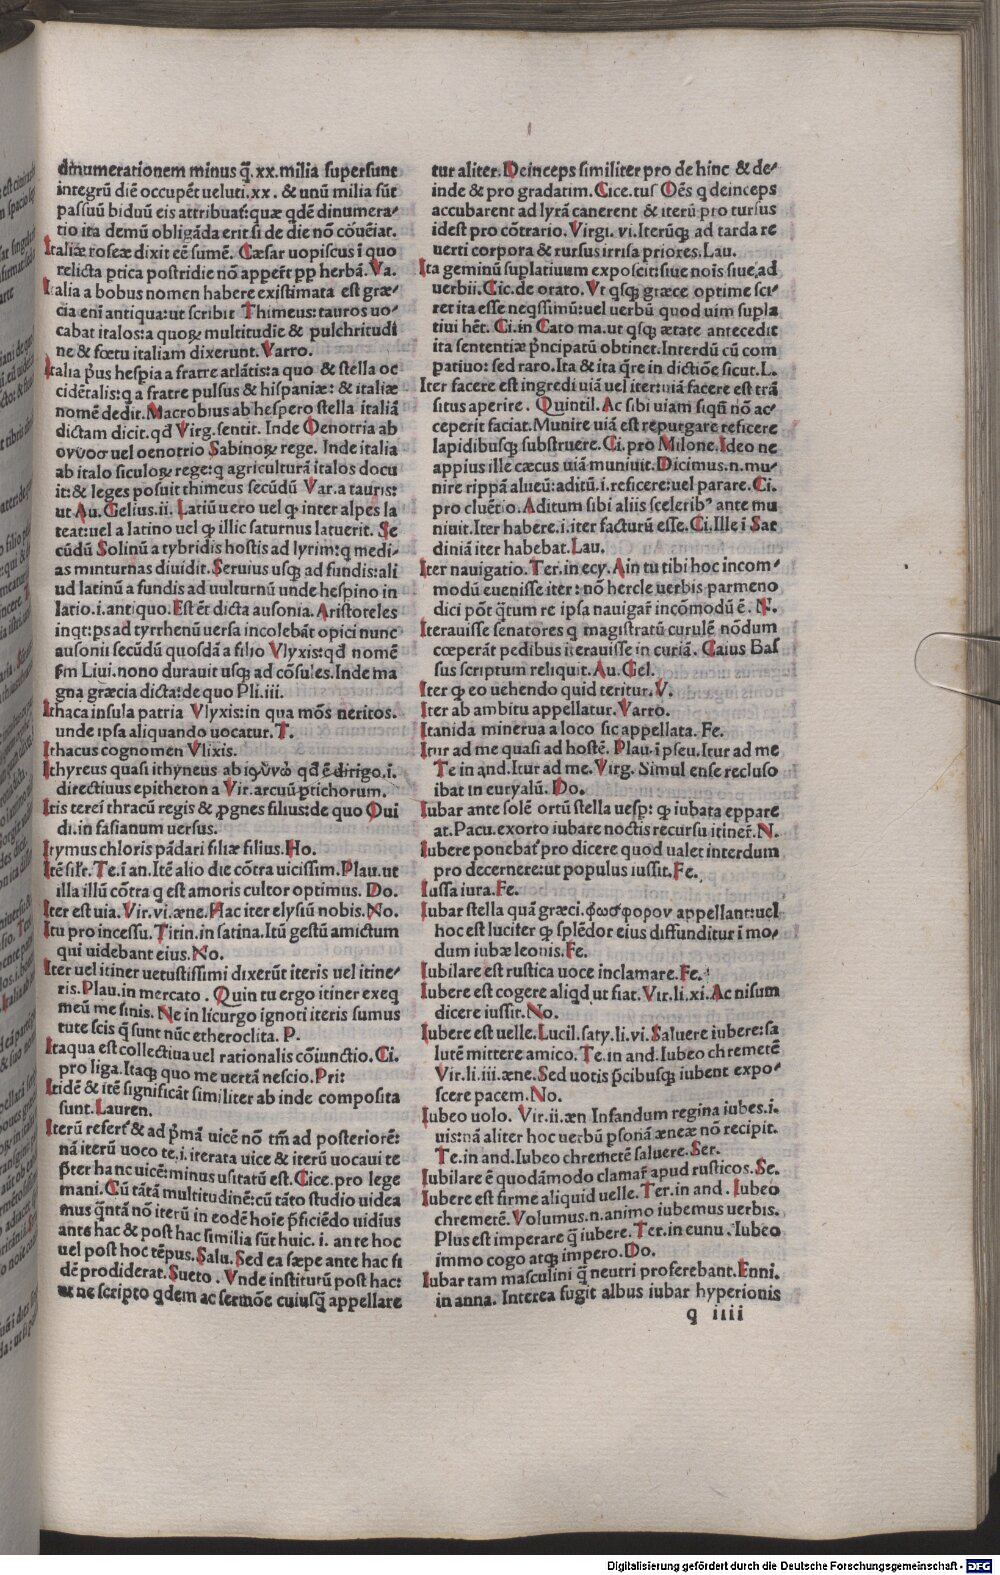 dinumerationem minus q̃. xx. milia supersunt
integrũ diẽ occupẽt ueluti. xx. & unũ milia sũt
passuũ biduũ eis attribuat: quæ qdẽ dinumera-
tio ita demũ obligãda erit si de die nõ cõuẽiat.
Italiæ roseæ dixit eẽ sumẽ. Cæsar uopiscus ĩ quo
relicta ptica postridie nõ apperẽt pp herbã. Va.
Italia a bobus nomen habere existimata est græ-
cia enĩ antiqua: ut scribit Thimeus: tauros uo-
cabat italos: a quoꝝ multitudĩe & pulchritudĩ
ne & fœtu italiam dixerunt. Varro.
Italia p̃us hespia a fratre atlãtis: a quo & stella oc
cidẽtalis: q a fratre pulsus & hispaniæ: & italiæ
nomẽ dedit. Macrobius ab hespero stella italiã
dictam dicit. qđ Virg. sentit. Inde Oenotria ab
ουνοσ uel oenotrio Sabinoꝝ rege. Inde italia
ab italo siculoꝝ rege: q agriculturã italos docu
it: & leges posuit thimeus secũdũ Var. a tauris:
ut Au. Gelius. ii. Latiũ uero uel ꝙ inter alpes la
teat: uel a latino uel ꝙ illic saturnus latuerit. Se
cũdũ Solinũ a tybridis hostis ad lyrim: q medi-
as minturnas diuidit. Seruius usqꝫ ad fundis: ali
ud latinũ a fundis ad uulturnũ unde hespino in
latio. i. antiquo. Est ẽt dicta ausonia. Aristoteles
inqt: ps ad tyrrhenũ uersa incolebãt opici nunc
ausonii secũdũ quosdã a filio Vlyxis: qđ nomẽ
p̃m Liui. nono durauit usqꝫ ad cõsules. Inde ma
gna græcia dicta: de quo Pli. iii.
Ithaca insula patria Vlyxis: in qua mõs neritos.
unde ipsa aliquando uocatur. T.
Ithacus cognomen Vlixis.
Ithyreus quasi ithyneus ab ιϙὺνὼ qđ ẽ dirigo. i.
directiuus epitheton a Vir. arcuũ ptichorum.
Itis tereĩ thracũ regis & ꝓgnes filius: de quo Oui
di. in fasianum uersus.
Itymus chloris pãdari filiæ filius. Ho.
Itẽ sił̃r. Te. ĩ an. Itẽ alio die cõtra uicissim. Plau. ut
illa illũ cõtra q est amoris cultor optimus. Do.
Iter est uia. Vir. vi. æne. Hac iter elysiũ nobis. No.
Itu pro incessu. Titin. in satina. Itũ gestũ amictum
qui uidebant eius. No.
Iter uel itiner uetustissimi dixerũt iteris uel itine-
ris. Plau. in mercato. Quin tu ergo itiner exeq
meũ me sinis. Ne in licurgo ignoti iteris sumus
tute scis q̃ sunt nũc etheroclita. P.
Itaqua est collectiua uel rationalis cõiunctio. Ci.
pro liga. Itaqꝫ quo me uertã nescio. Pri:
Itidẽ & itẽ significãt similiter ab inde composita
sunt. Lauren.
Iterũ refert̃ & ad p̃mã uicẽ nõ tm̃ ad posteriorẽ:
nã iterũ uoco te. i. iterata uice & iterũ uocaui te
p̃ter hanc uicẽ: minus usitatũ est. Cice. pro lege
mani. Cũ tãtã multitudinẽ: cũ tãto studio uidea
mus q̃ntã nõ iterũ in eodẽ hoĩe p̃ficiẽdo uidius
ante hac & post hac similia sũt huic. i. ante hoc
uel post hoc tẽpus. Salu. Sed ea sæpe ante hac fi
dẽ prodiderat. Sueto. Vnde institutũ post hac:
ut ne scripto qdem ac sermõe cuiusq̃ appellare
tur aliter. Deinceps similiter pro de hinc & de-
inde & pro gradatim. Cice. tus Oẽs q deinceps
accubarent ad lyrã canerent & iterũ pro tursus
idest pro cõtrario. Virgi. vi. Iterũqꝫ ad tarda re
uerti corpora & rursus irrisa priores. Lau.
Ita geminũ suplatiuum exposcit: siue nois siue, ad
uerbii. Cic. de orato. Vt qsqꝫ græce optime sci-
ret ita esse neqssimũ: uel uerbũ quod uim supla
tiui hẽt. Ci. in Cato ma. ut qsqꝫ ætate antecedit
ita sententiæ p̃ncipatũ obtinet. Interdũ cũ com
patiuo: sed raro. Ita & ita q̃re in dictiõe sicut. L.
Iter facere est ingredi uiã uel iter: uiã facere est trã
situs aperire. Quintil. Ac sibi uiam siqũ nõ ac-
ceperit faciat. Munire uiã est repurgare reficere
lapidibusqꝫ substruere. Ci. pro Milone. Ideo ne
appius ille cæcus uiã muniuit. Dicimus. n. mu-
nire rippã alueũ: aditũ. i. reficere: uel parare. Ci.
pro cluẽtio. Aditum sibi aliis scelerib⁹ ante mu
niuit. Iter habere. i. iter facturũ esse. Ci. Ille ĩ Sar
diniã iter habebat. Lau.
Iter nauigatio. Ter. in ecy. Ain tu tibi hoc incom-
modũ euenisse iter: nõ hercle uerbis parmeno
dici põt q̃tum re ipsa nauigar̃ incõmodũ ẽ. N.
Iterauisse senatores q magistratũ curulẽ nõdum
cœperãt pedibus iterauisse in curiã. Caius Bas
sus scriptum reliquit. Au. Gel.
Iter ꝙ eo uehendo quid teritur. V.
Iter ab ambitu appellatur. Varro.
Itanida minerua a loco sic appellata. Fe.
Itur ad me quasi ad hostẽ. Plau. ĩ pseu. Itur ad me
Te in and. Itur ad me. Virg. Simul ense recluso
ibat in euryalũ. Do.
Iubar ante solẽ ortũ stella uesp̃: ꝙ iubata eppare
at. Pacu. exorto iubare noctis recursu itiner̃. N.
Iubere ponebat̃ pro dicere quod ualet interdum
pro decernere: ut populus iussit. Fe.
Iussa iura. Fe.
Iubar stella quã græci. φωσφορον appellant: uel
hoc est luciter ꝙ splẽdor eius diffunditur ĩ mo-
dum iubæ leonis. Fe.
Iubilare est rustica uoce inclamare. Fe.
Iubere est cogere aliqd ut fiat. Vir. li. xi. Ac nisum
dicere iussit. No.
Iubere est uelle. Lucil. saty. li. vi. Saluere iubere: sa
lutẽ mittere amico. Te. in and. Iubeo chremetẽ
Vir. li. iii. æne. Sed uotis p̃cibusqꝫ iubent expo-
scere pacem. No.
Iubeo uolo. Vir. ii. æn Infandum regina iubes. i.
uis: nã aliter hoc uerbũ p̃sonã æneæ nõ recipit.
Te. in and. Iubeo chremetẽ saluere. Ser.
Iubilare ẽ quodãmodo clamar̃ apud rusticos. Se.
Iubere est firme aliquid uelle. Ter. in and. Iubeo
chremetẽ. Volumus. n. animo iubemus uerbis.
Plus est imperare q̃ iubere. Ter. in eunu. Iubeo
immo cogo atqꝫ impero. Do.
Iubar tam masculini q̃ neutri proferebant. Enni.
in anna. Interea fugit albus iubar hyperionis
q iiii
Digitalisierung gefördert durch die Deutsche Forschungsgemeinschaft - DFG